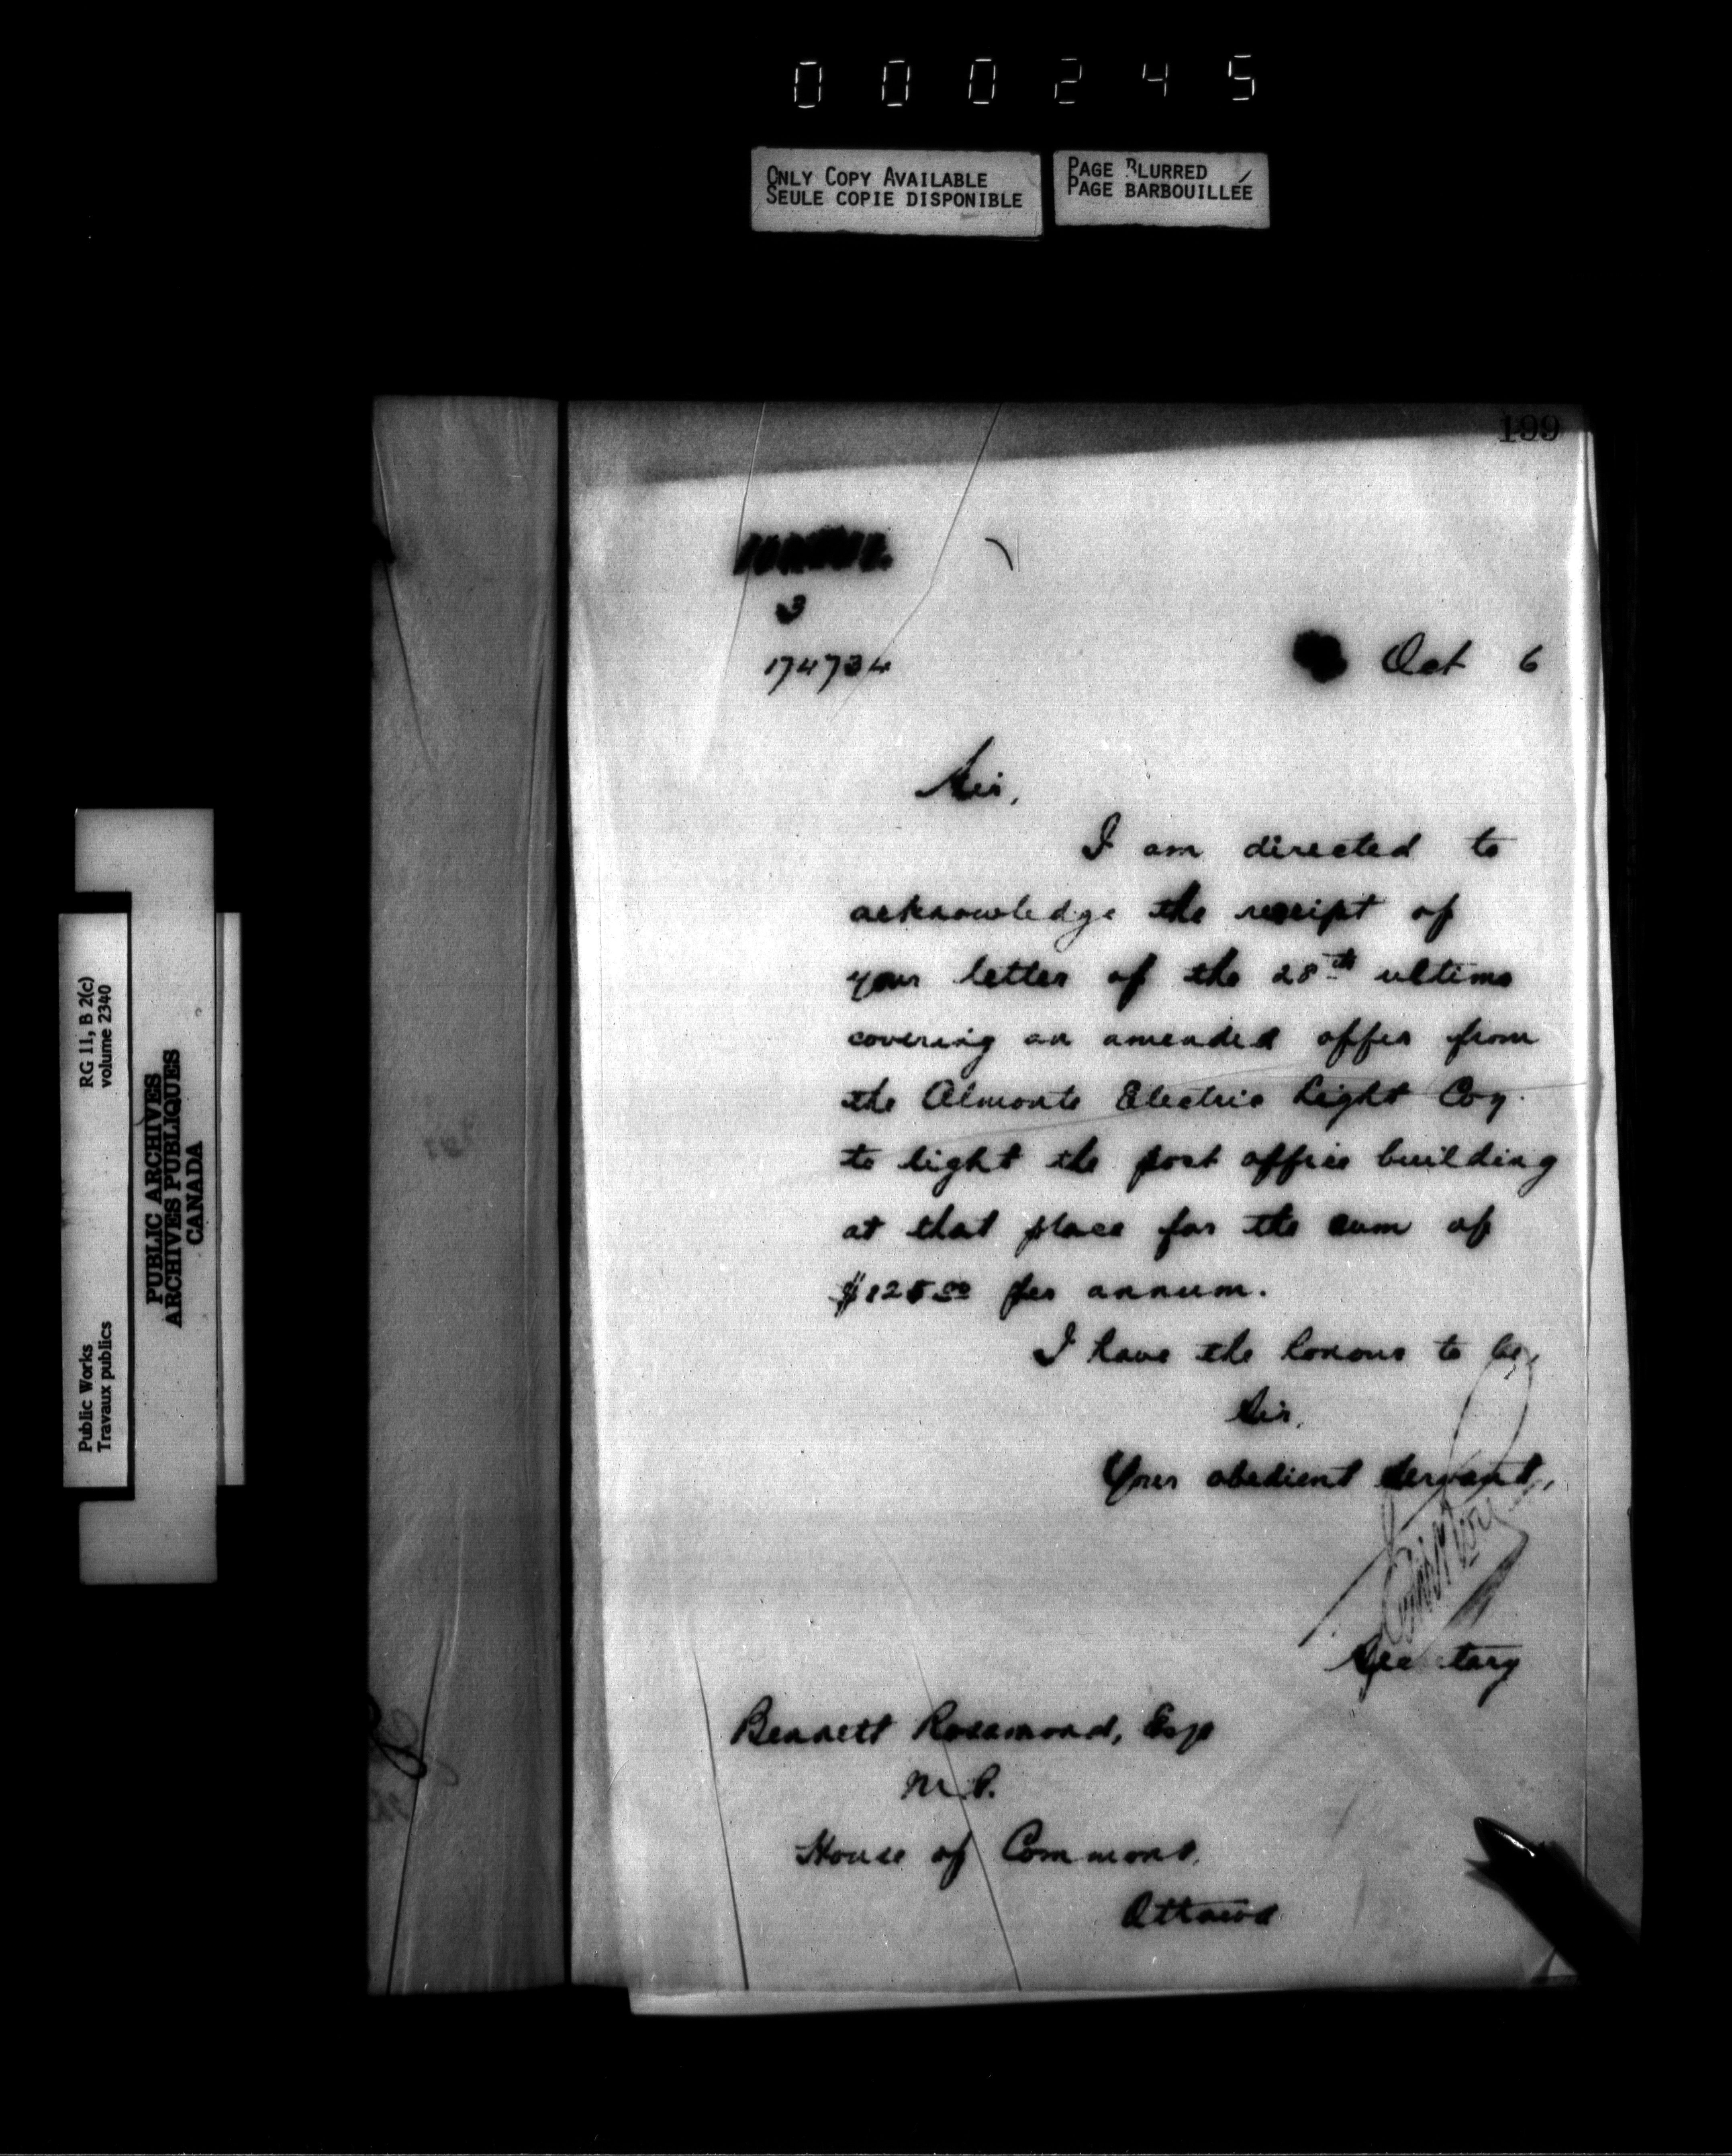 000245
ONLY COPY AVAILABLE
SEULE COPIE DISPONIBLE
PAGE BLURRED
PAGE BARBOUILLÉE
199
3
174734
Oct 6
Sir,
I am directed to
acknowledge the receipt of
your letter of the 28th ultimo
covering an amended offer from
the Almonte Electric Light Coy.
to light the post office building
at that place for the sum of
$125.00 per annum.
I have the honour to be,
Sir,
Your obedient servant,
Secretary
Bennett Rosamond, Esqe
M.P.
House of Commons,
Ottawa
Public Works
Travaux publics
RG 11, B 2(c)
volume 2340
PUBLIC ARCHIVES
ARCHIVES PUBLIQUES
CANADA